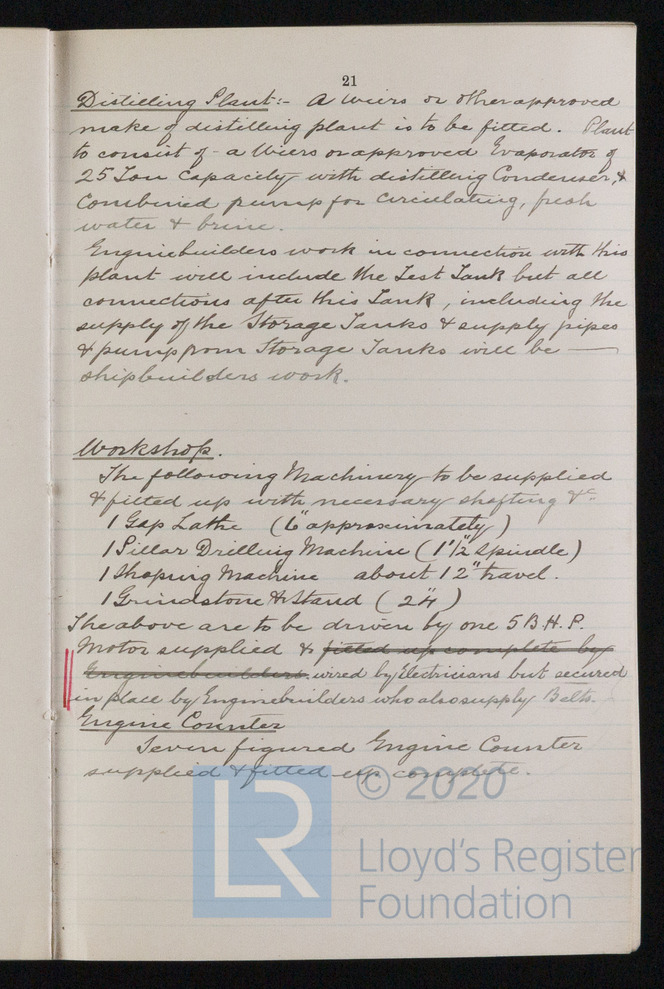 21
Distilling Plant:- A Weirs or other approved
make of distilling plant is to be fitted. Plant
to consist of - a Weirs or approved Evaporator of
25 Ton Capacity with distilling Condenser, &
Combined pump for circulating, fresh
water & brine.
Enginebuilders work in connection with this
plant will include the Test Tank but all
connections after this Tank, including the
supply of the Storage Tanks & supply pipes
& pump from Storage Tanks will be —
shipbuilders work.
Workshop.
The following Machinery to be supplied
& fitted up with necessary shafting &c.
1 Gap Lathe (6" approximately)
1 Pillar Drilling Machine (1½" Spindle)
1 Shaping Machine about 12" travel.
1 Grindstone & Stand (24")
The above are to be driven by one 5 B.H.P.
Motor supplied & fitted up complete by
Enginebuilders. wired by Electricians but secured
in place by Enginebuilders who also supply Belts.
Engine Counter
Seven figured Engine Counter
supplied & fitted up complete.
© 2020
LR
Lloyd's Register
Foundation